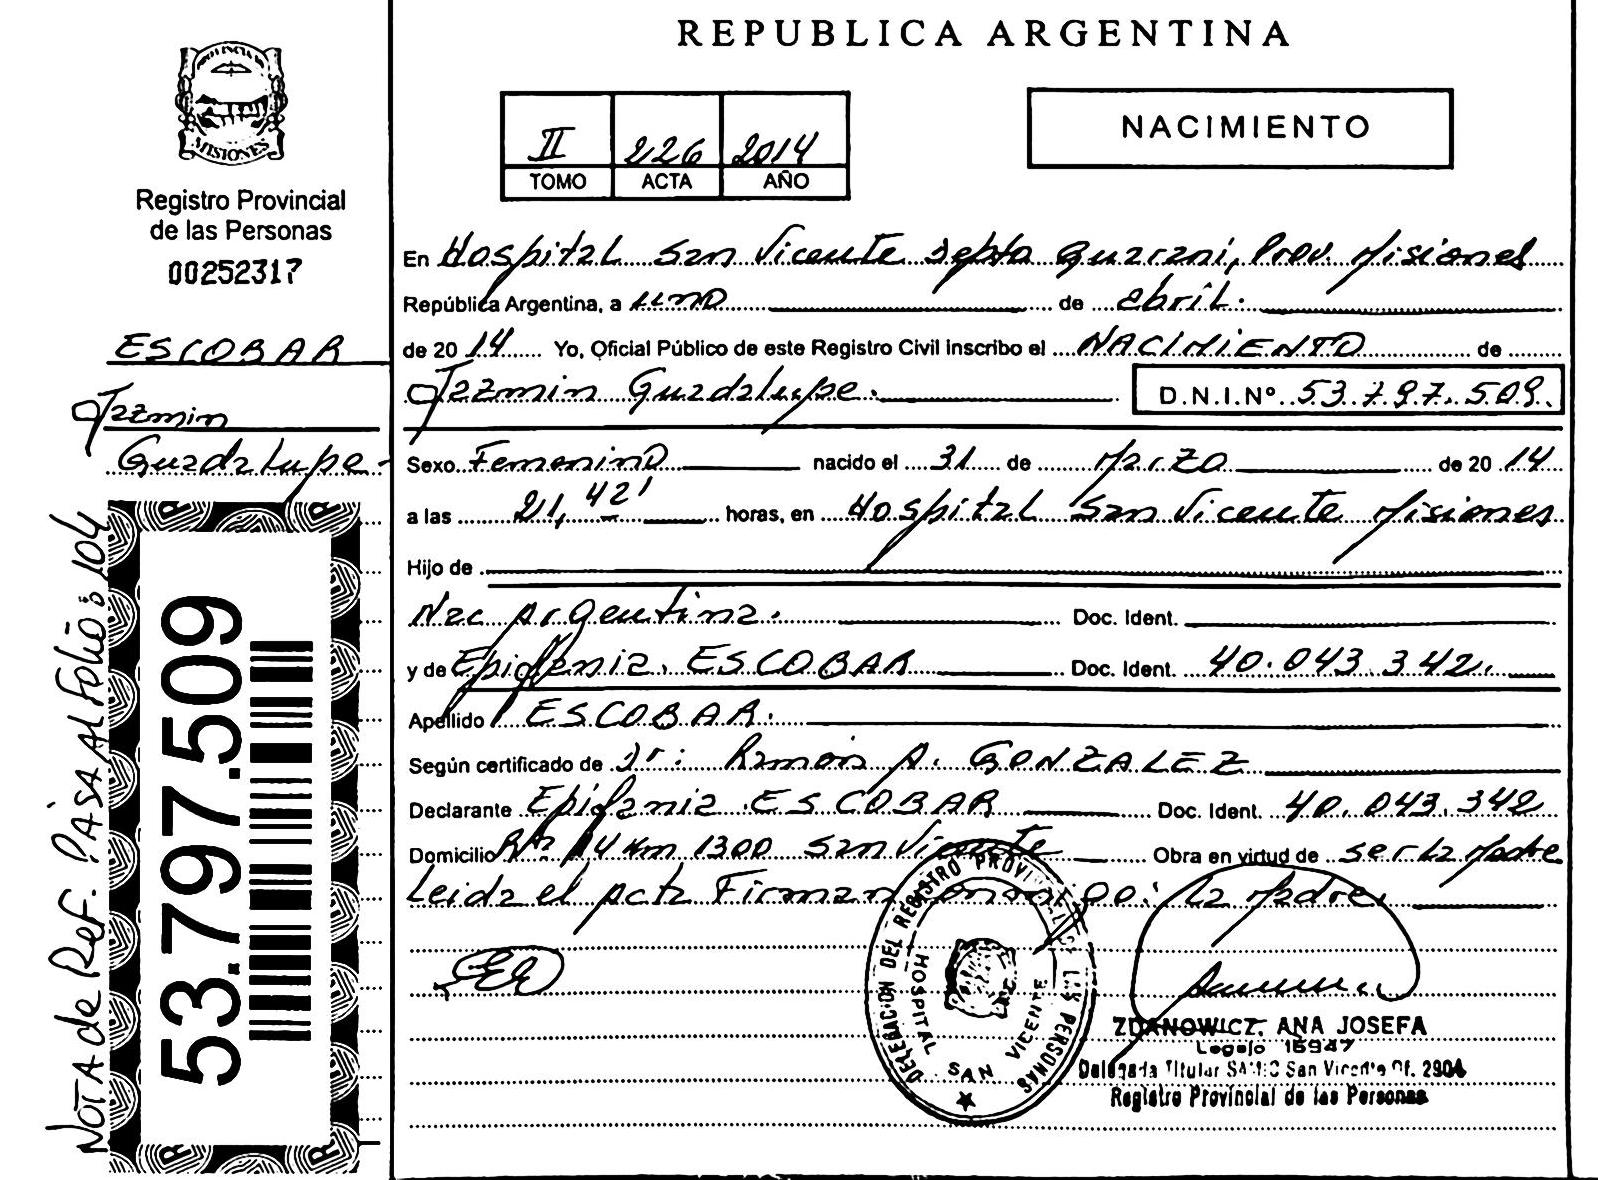 REPUBLICA ARGENTINA
MISIONES
Registro Provincial
de las Personas
00252317
ESCOBAR
Jazmin
Guadalupe-
NOTA de Ref. PASA Al Folio: 104
53.797.509
II 226 2014
TOMO ACTA AÑO
NACIMIENTO
En Hospital San Vicente Depto Guarani, Prov. Misiones
República Argentina, a uno de abril.
de 2014 Yo, Oficial Público de este Registro Civil inscribo el NACIMIENTO de
Jazmin Guadalupe. D.N.I.Nº 53.797.509.
Sexo Femenino nacido el 31 de Marzo de 2014
a las 21,42' horas, en Hospital San Vicente Misiones
Hijo de
Nac Argentina. Doc. Ident.
y de Epifania. ESCOBAR Doc. Ident. 40.043.342.
Apellido ESCOBAR.
Según certificado de Dr: Ramón A. GONZALEZ
Declarante Epifania ESCOBAR Doc. Ident. 40.043.342
Domicilio Rta 14 km 1300 San Vicente Obra en virtud de ser la Madre
Leida el acta Firman la Madre.
DELEGACION DEL REGISTRO PROVINCIAL DE LAS PERSONAS
HOSPITAL SAN VICENTE
ZDANOWICZ, ANA JOSEFA
Legajo 15947
Delegada Titular SAMIC San Vicente Of. 2904
Registro Provincial de las Personas